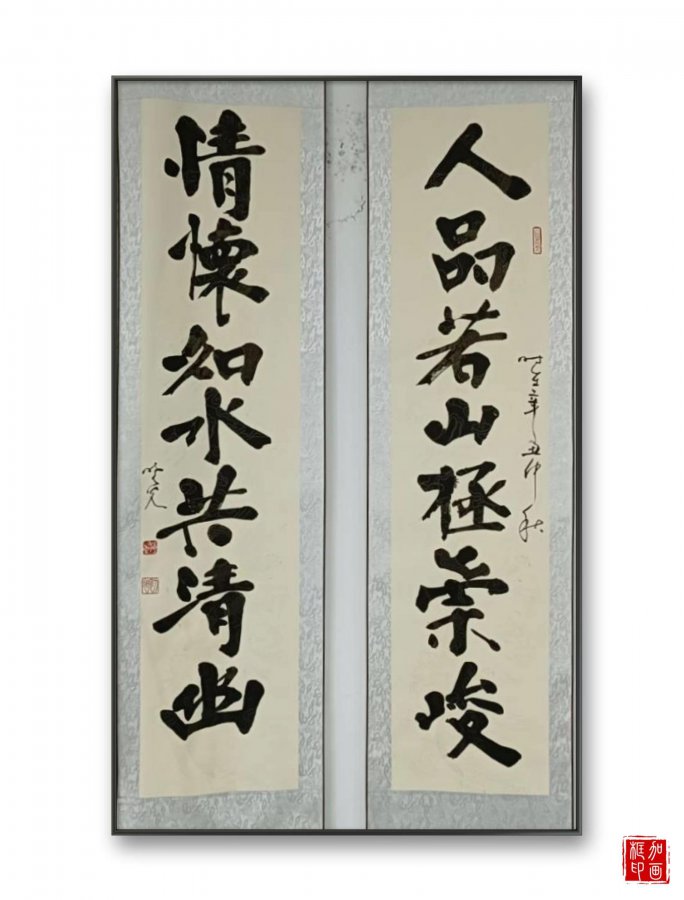 人品若山极崇峻
时在辛丑仲秋
情怀如水共清幽
加画框印